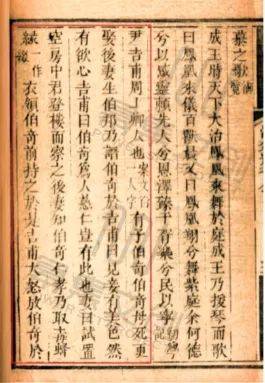 慕之歌御覽
成王時天下大治鳳凰來舞於庭成王乃援琴而歌
曰鳳凰來儀百獸晨又曰鳳凰翔兮舞紫庭余何德
兮以感靈賴先人兮恩澤臻于胥樂兮民以寧
尹吉甫周上卿人也案文百一人字有子伯奇伯奇母死更
娶後妻生伯邦乃譖伯奇於吉甫曰見妾有美色然
有欲心吉甫曰伯奇為人慈仁豈有此也妻曰試置
空房中君登樓而察之後妻知伯奇仁孝乃取毒蜂
緣一作綴衣領伯奇前持之於是吉甫大怒放伯奇於